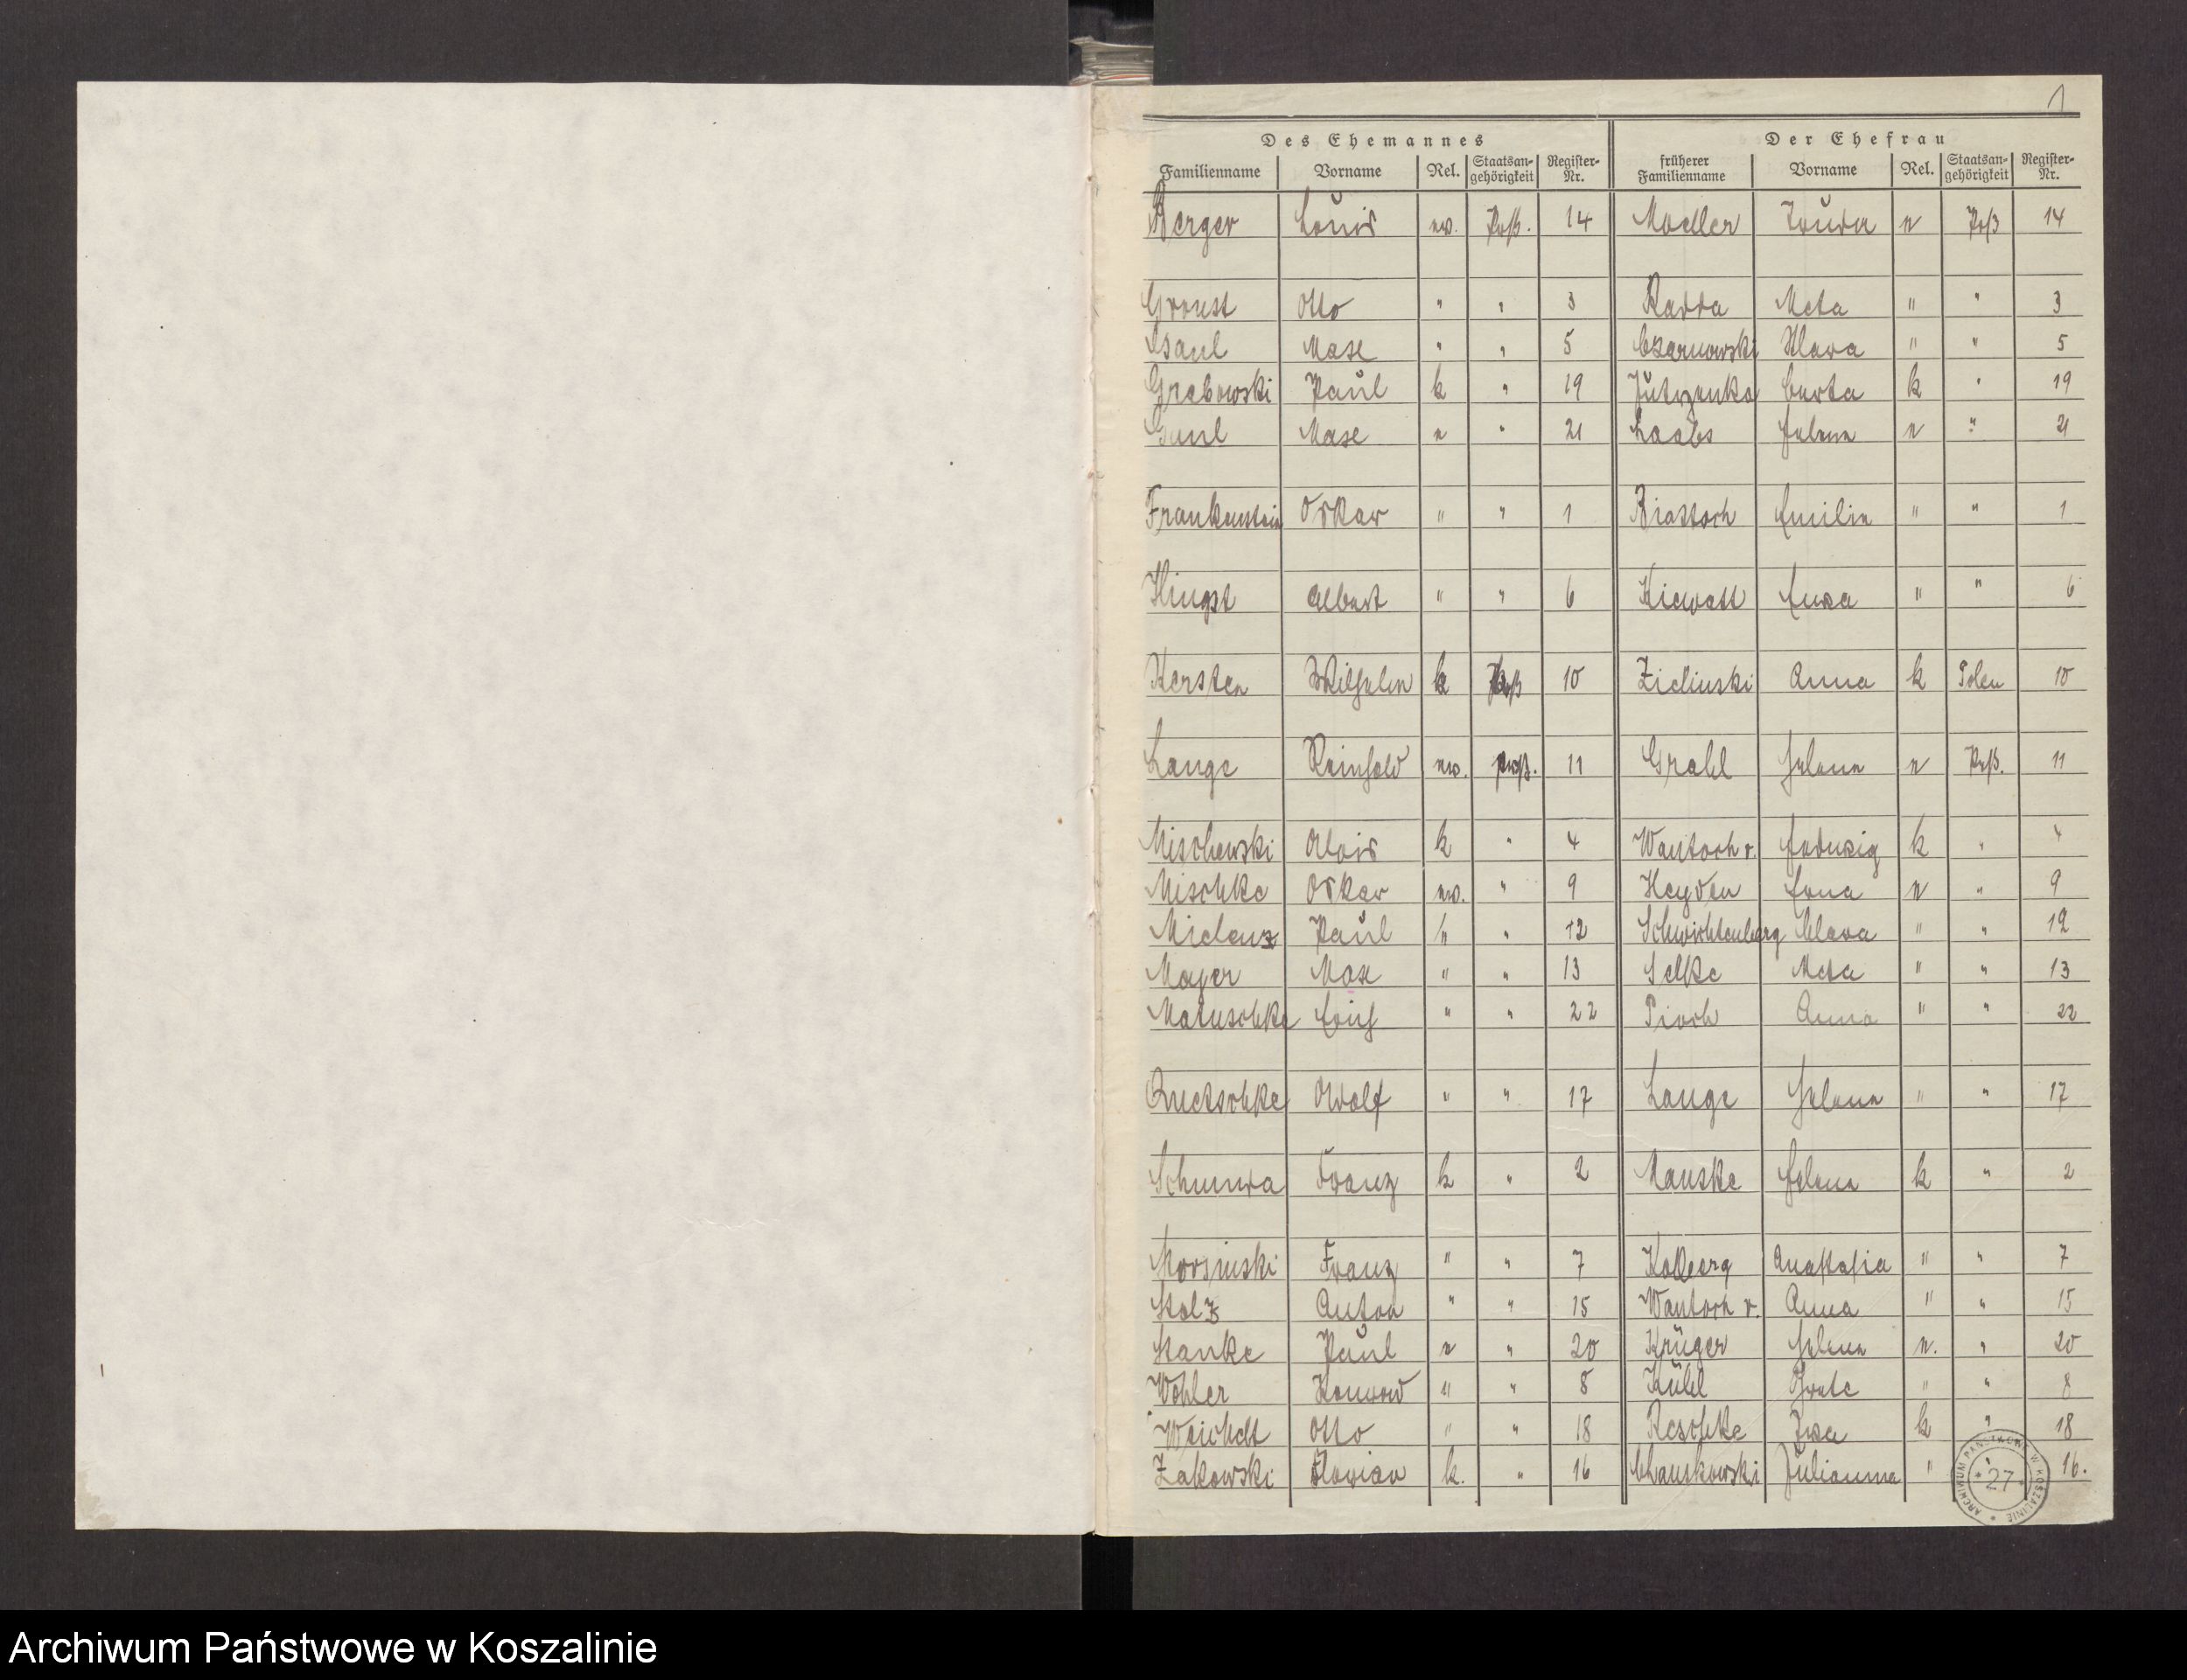 1
Des Ehemannes Der Ehefrau
Familienname Vorname Rel. Staatsangehörigkeit Register-Nr. früherer Familienname Vorname Rel. Staatsangehörigkeit Register-Nr.
Berger Louis ev. Prß. 14 Moeller e Prß 14
Otto " " 3 Radda Meta " " 3
Max " " 5 Czarnowski Klara " " 5
Grabowski Paul k " 19 Jutrzenka Berta k " 19
Max e " 21 Laabs Helene e " 21
Frankenstein Oskar " " 1 Emilie " " 1
Hingst Albert " " 6 " " 6
Kersten Wilhelm k 10 Zielinski Anna k Polen 10
Lange Reinhold ev. 11 Grahl Helene e Prß. 11
Mischewski Alois k " 4 Wantoch v. Hedwig k " 4
Mischke Oskar ev. " 9 Heyden Erna e " 9
Mielenz Paul " " 12 Schwichtenberg Klara " " 12
Mayer Max " " 13 Selke Meta " " 13
Matuschke " " 22 Pioch Anna " " 22
Quetschke Adolf " " 17 Lange Helene " " 17
Franz k " 2 Manske Helene k " 2
Franz " " 7 Kolberg Anastasia " " 7
Stolz Anton " " 15 Wantoch v. Anna " " 15
Stanke Paul e " 20 Krüger Helene e. " 20
Wohler Konrad " " 8 Kühl Grete " " 8
Weichelt Otto " " 18 Reschke k " 18
Zakowski Florian k. " 16 Julianna " " 16.
ARCHIWUM PAŃSTWOWE W KOSZALINIE
* 27 *
Archiwum Państwowe w Koszalinie